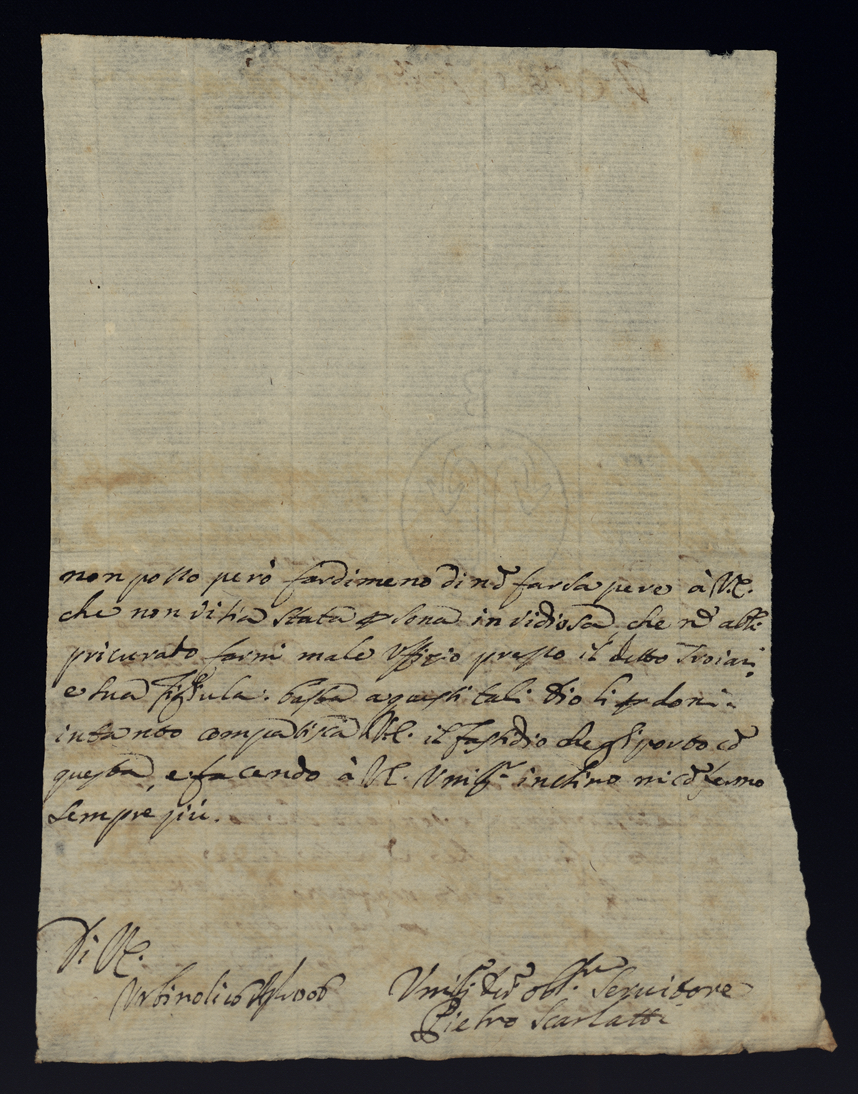 non posso però far di meno di nō far sapere à V.E.
che non vi sia stata ꝑsona invidiosa, che nō abbi
pricurato farmi male Uffizio presso il detto Troiani,
e sua basta a questi tali Dio li ꝑdoni.
intanto compatisca V.E. il fastidio che gli porto cō
questa, e facendo à V.E. Umiss.o inchino mi cōfermo
sempre più.
Di V.E.
Urbino li
Umiliss. Dev. Obb.mo Servitore
Pietro Scarlatti
B